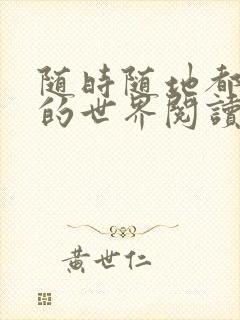 随時随地都
的世界閱讀
黃世仁